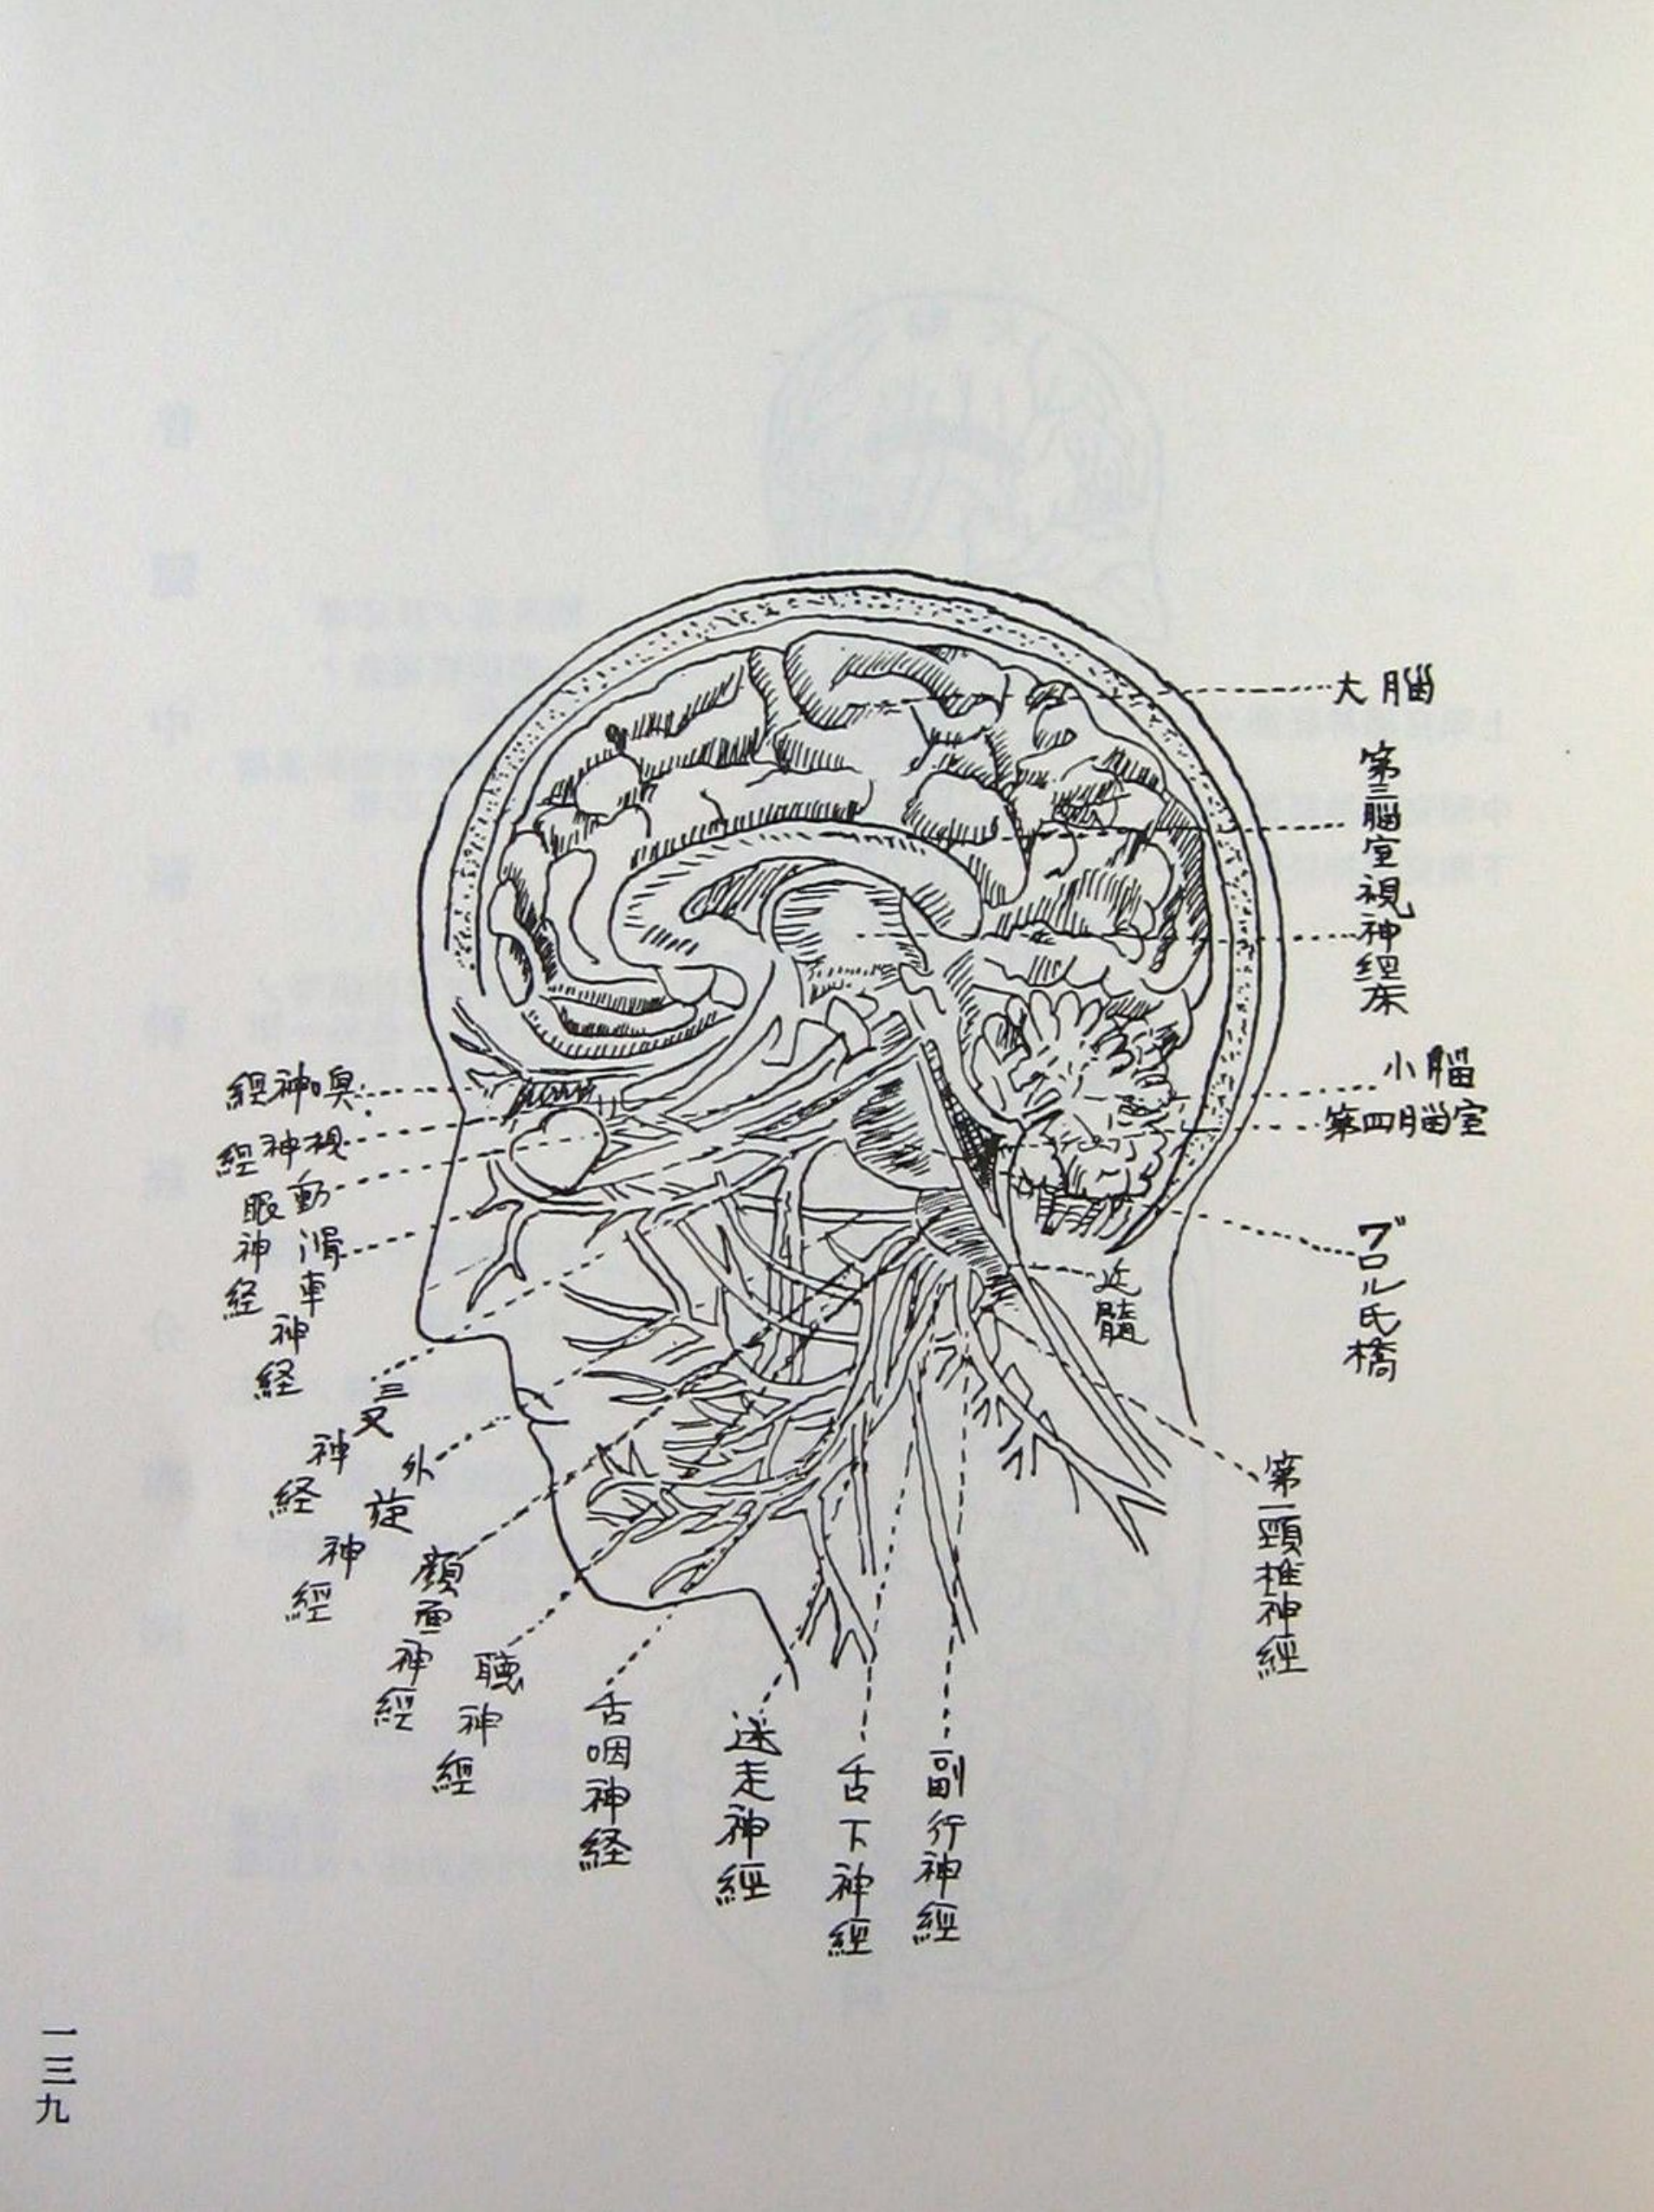 大脳
第三脳室
視神経床
小脳
第四脳室
ブロル氏橋
近髄
第一頸椎神經
嗅神経
視神経
動眼神経
滑車神経
三叉神経
外旋神經
顔面神經
聴神經
舌咽神経
迷走神經
舌下神經
副行神經
一三九